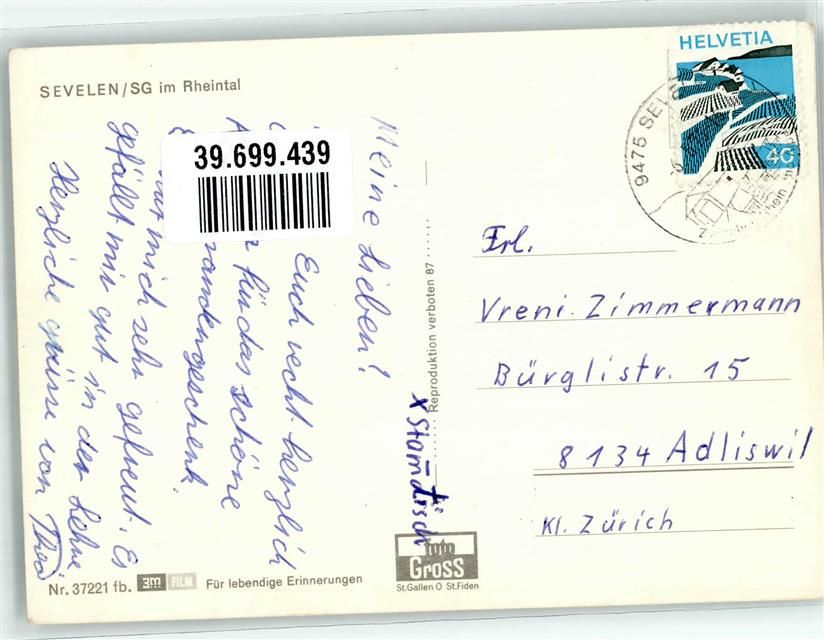 SEVELEN/SG im Rheintal
HELVETIA
40
9475 SEVE
39.699.439
Meine Lieben!
Euch recht herzlich
für das schöne
gefällt mir gut in der Lehre
mich sehr gefreut. Es
Herzliche grüsse von
x Stamdisch
Reproduktion verboten 87
Frl.
Vreni Zimmermann
Bürglistr. 15
8134 Adliswil
Kt. Zürich
foto
Gross
St.Gallen O St.Fiden
Nr. 37221 fb. 3M FILM Für lebendige Erinnerungen